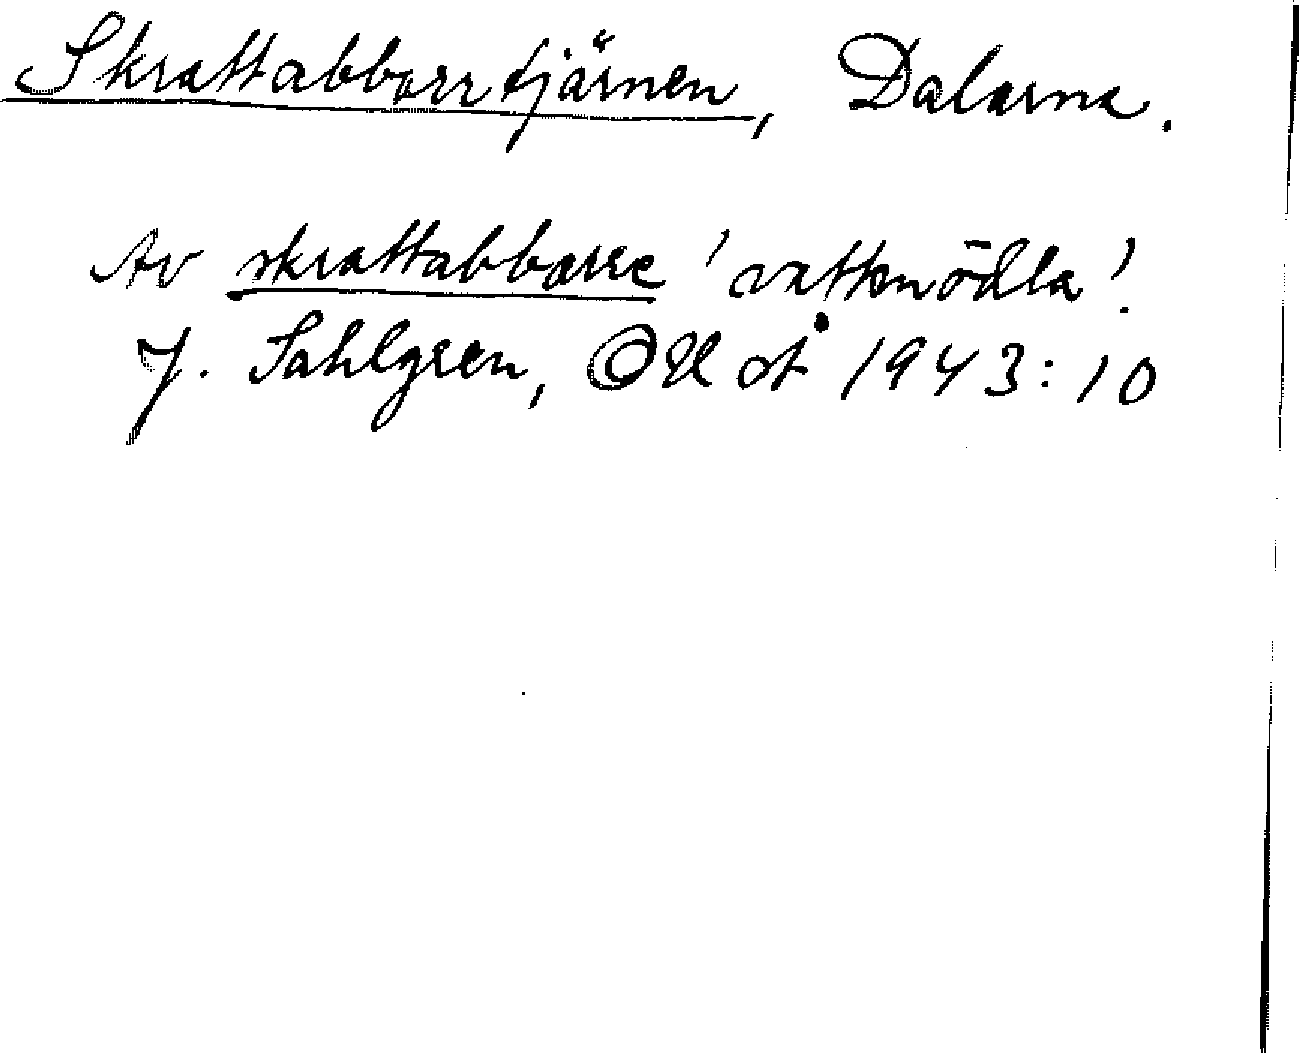 Skrattabborrtjärnen, Dalarna.
Av skrattabborre 'vattenödla'.
J. Sahlgren, OUÅ 1943:10